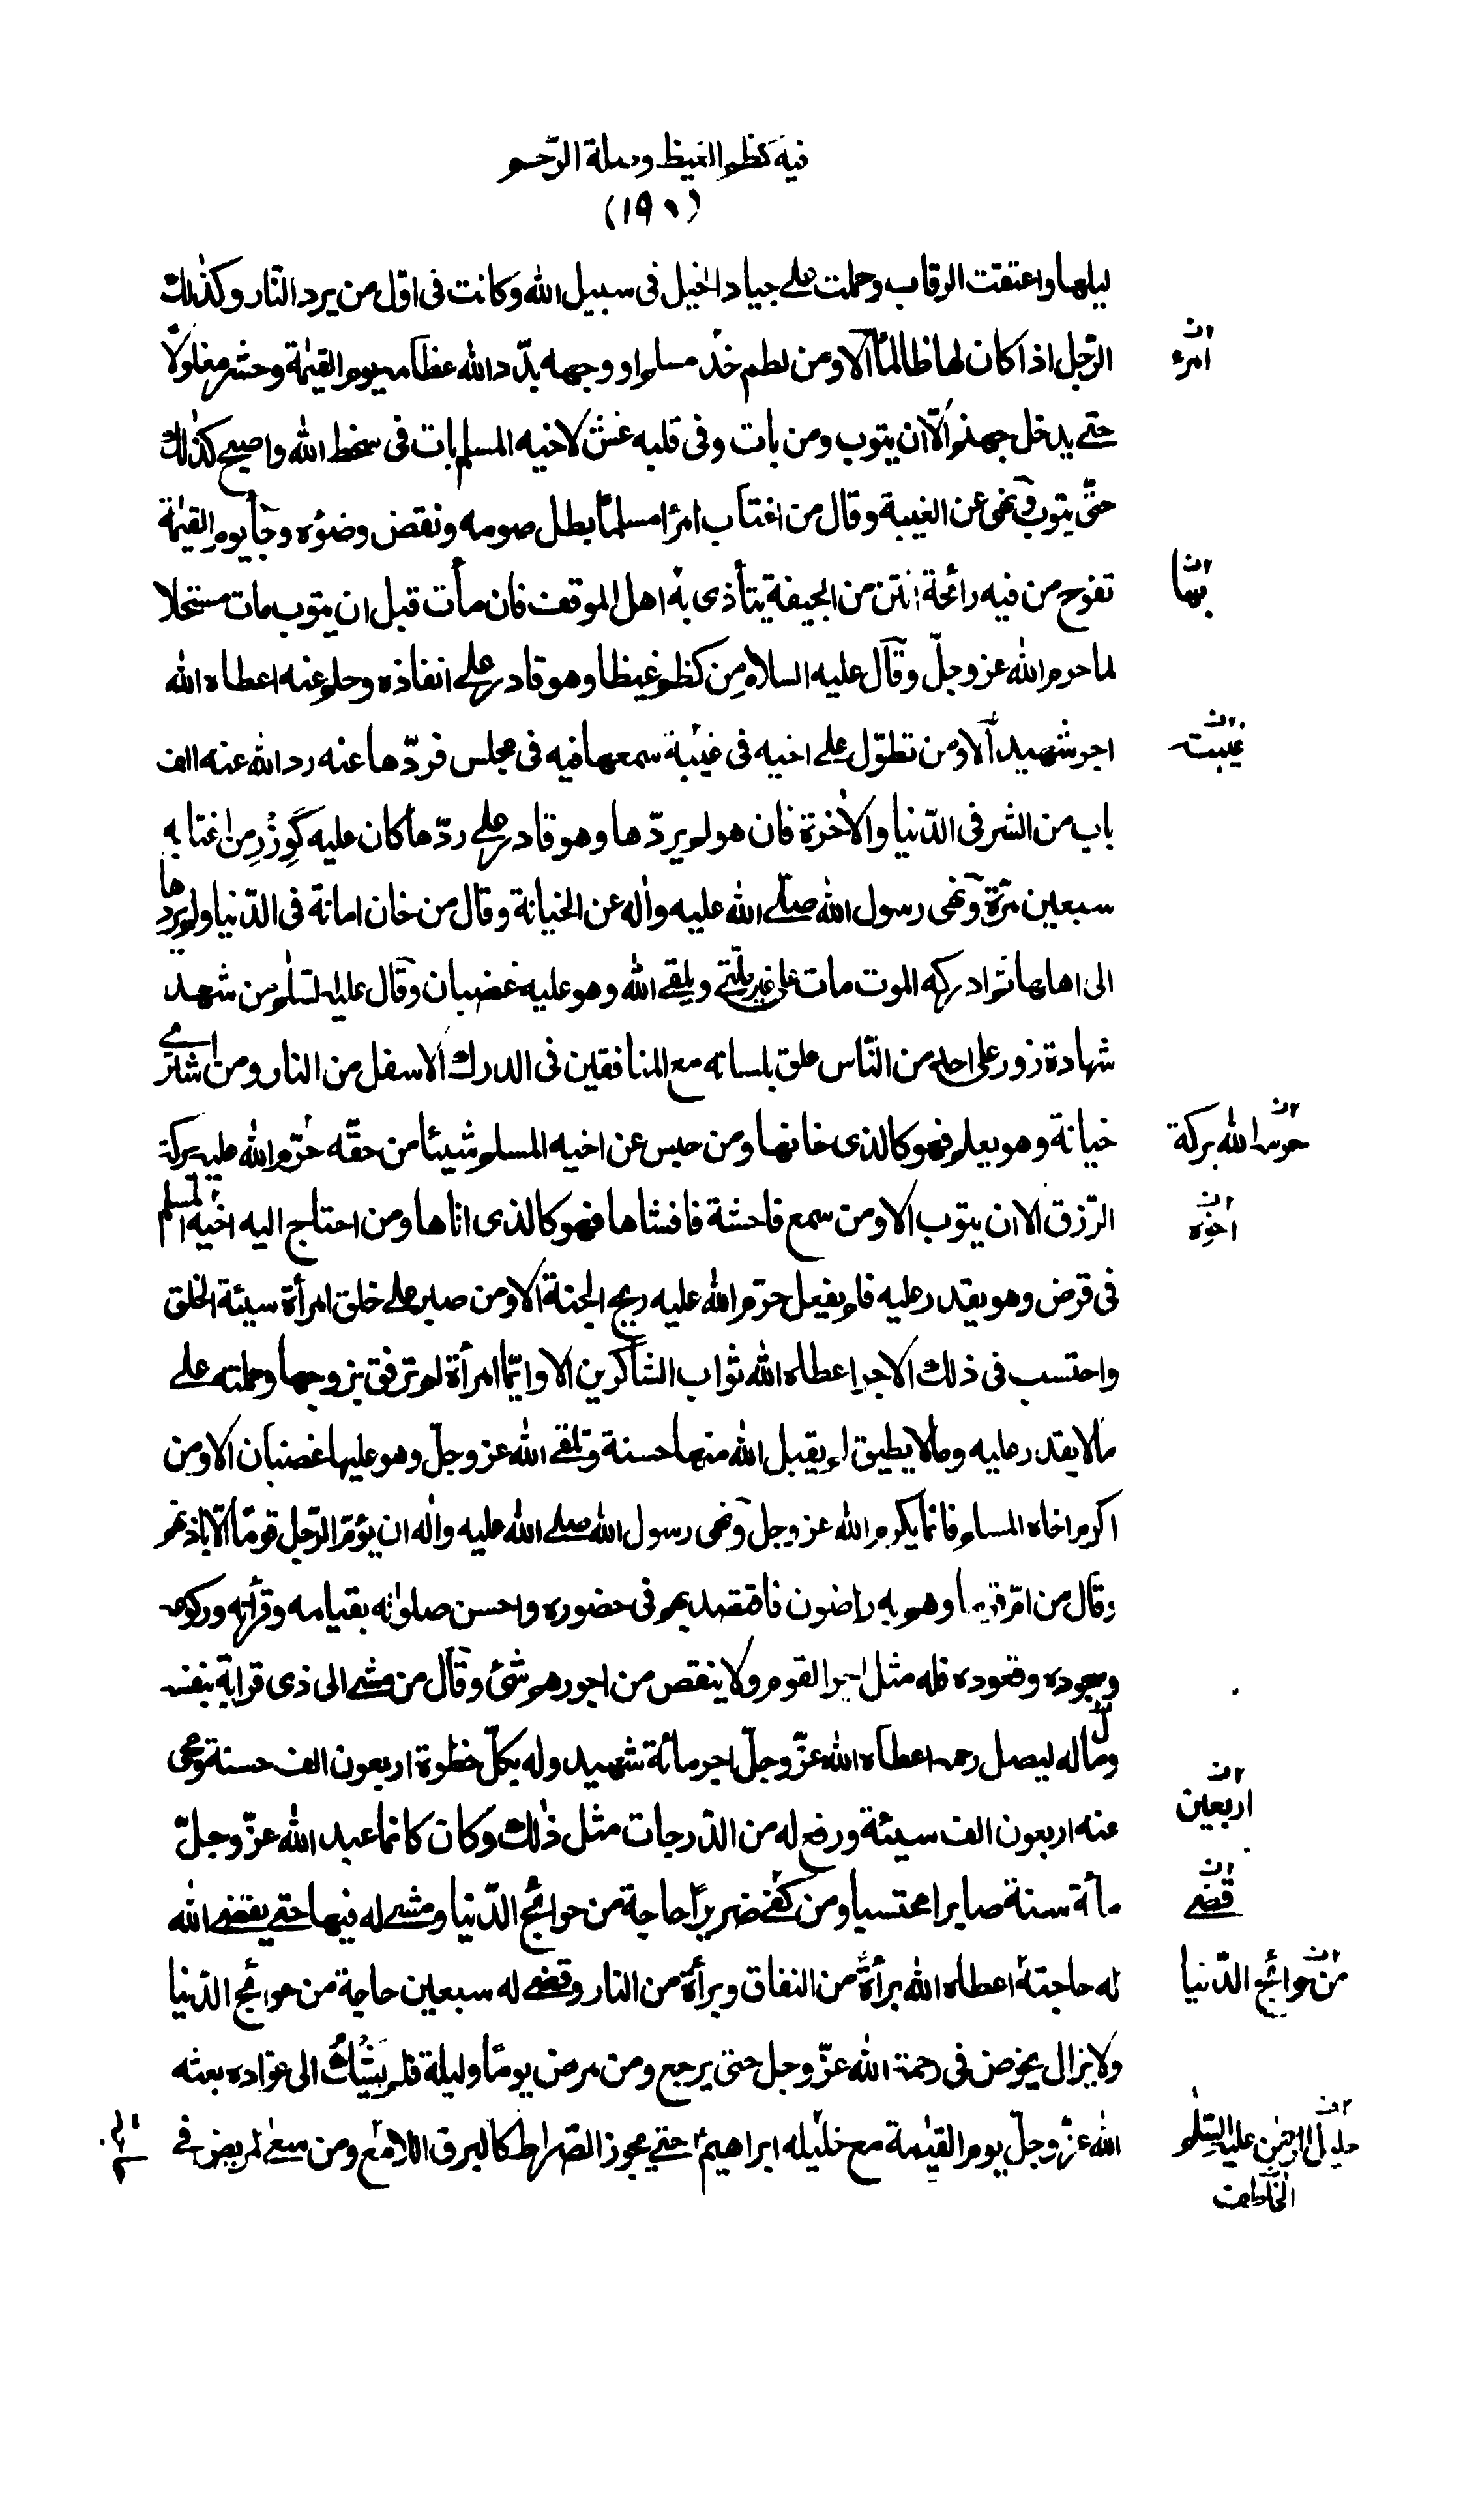 فيه كظم الغيظ وصلة الرّحم
(١٩٠)
ليلها واعتقت الرقاب وحملت على جياد الخيل فى سبيل الله وكانت فى اوّل من يرد النّار وكذلك
الرّجل اذا كان لها ظالماً الا ومن لطم خدّ مسلم او وجهه بدّد الله عظامه يوم القيٰمة وحشر مغلولا
ان
امرء
حتى يدخل جهنم الّا ان يتوب ومن بات وفى قلبه غشّ لاخيه المسلم بات فى سخط الله واصبح كذلك
حتّى يتوب ونهى عن الغيبة وقال من اغتاب امرأ مسلماً بطل صومه ونقض وضوئه وجآء يوم القيٰمة
تفوح من فيه رائحة انتن من الجيفة يتأذى به اهل الموقف فان مات قبل ان يتوب مات مستحلا
ان
بها
لما حرم الله عز وجلّ وقال عليه السلام من كظم غيظا وهو قادر على انفاذه وحلم عنه اعطاه الله
اجر شهيد الا ومن تطوّل على اخيه فى غيبة سمعها فيه فى مجلس فردّها عنه رد الله عنه الف
ان
غيبت
باب من الشر فى الدّنيا والاخرة فان هو لم يردّها وهو قادر على ردّها كان عليه كوِزْرِ من اغتابه
سبعين مرّة ونهى رسول الله صلى الله عليه واله عن الخيانة وقال من خان امانة فى الدّنيا ولم يردها
الى اهلها ثم ادركه الموت مات على غير ملّتى ويلقى الله وهو عليه غضبان وقال عليه السّلم من شهد
شهادة زور على احد من النّاس علق بلسانه مع المنافقين فى الدرك الاسفل من النار ومن اشترى
خيانة وهو يعلم فهو كالذى خانها ومن حبس عن اخيه المسلم شيئا من حقّه حرّم الله عليه بركة
ان
حرم الله بركة
الرّزق الا ان يتوب الا ومن سمع فاحشة فافشاها فهو كالذى اتاها ومن احتاج اليه اخيه المسلم
ان
اخوه
فى قرض وهو يقدر عليه فلم يفعل حرّم الله عليه ريح الجنة الا ومن صبر على خلق امرأة سيئة الخلق
واحتسب فى ذلك الاجر اعطاه الله ثواب الشاكرين الا وايّما امرأة لم ترفق بزوجها وحملته على
ما لا يقدر عليه وما لا يطيق لم يقبل الله منها حسنة وتلقى الله عز وجلّ وهو عليها غضبان الا ومن
اكرم اخاه المسلم فانما يكرم الله عز وجل ونهى رسول الله صلى الله عليه واله ان يؤمّ الرّجل قوماً الّا باذنهم
وقال من امّ قوما وهم به راضون فاقتصد بهم فى حضوره واحسن صلوٰته بقيامه وقرأته وركوعه
وسجوده وقعوده فله مثل اجر القوم ولا ينقص من اجورهم شئ وقال من مشى الى ذى قرابة بنفسه
وماله ليصل رحمه اعطاه الله عزّ وجلّ اجر مائة شهيد وله بكلّ خطوة اربعون الف حسنة ومحى
عنه اربعون الف سيئة ورفع له من الدّرجات مثل ذٰلك وكان كانما عبد الله عزّ وجلّ
ان
اربعين
مأة سنة صابرا محتسبا ومن كفى ضريراً حاجة من حوائج الدّنيا ومشى له فيها حتى يقضى الله
ان
قضى
له حاجته اعطاه الله برأةً من النفاق وبرأة من النار وقضى له سبعين حاجة من حوائج الدّنيا
ان
من حوائج الدّنيا
ولا يزال يخوض فى رحمة الله عزّ وجل حتى يرجع ومن مرض يوماً وليلة فلم يَشْكُ الى عوّاده بعثه
الله عزّ وجلّ يوم القيٰمة مع خليله ابراهيم حتى يجوز الصّراط كالبرق اللامع ومن سعى لمريض فى
ان
عليه السّلم